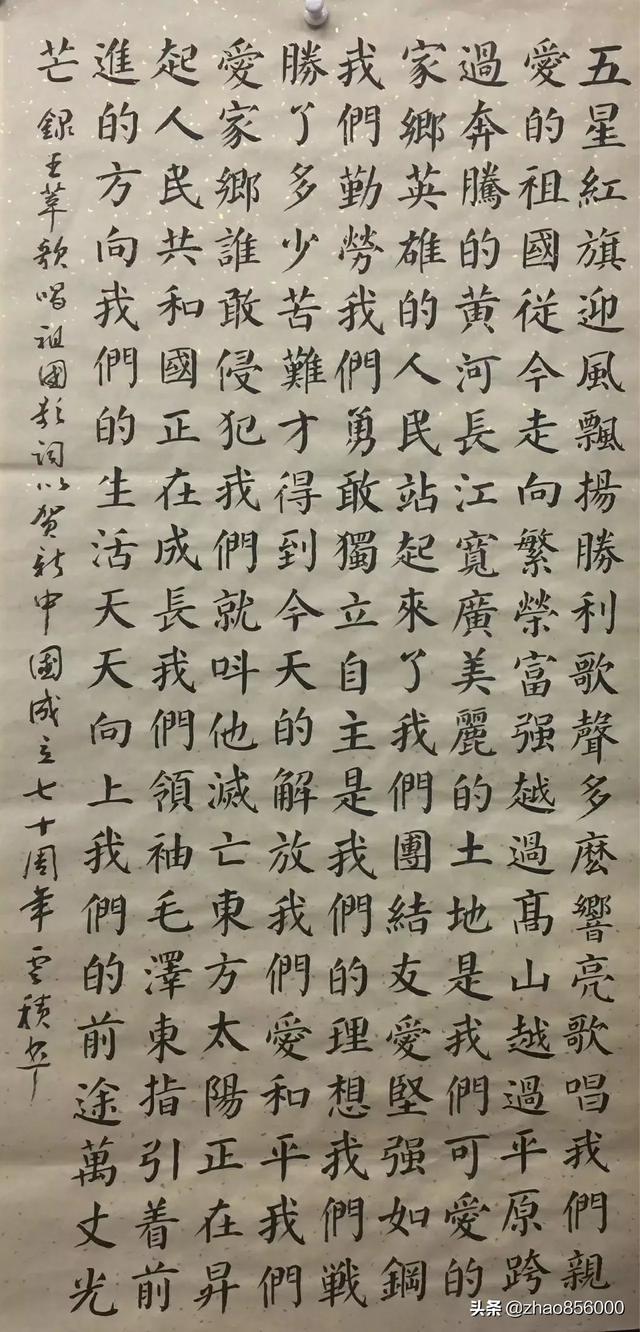 五星紅旗迎風飄揚勝利歌聲多麼響亮歌唱我們親
愛的祖國從今走向繁榮富强越過髙山越過平原跨
過奔騰的黄河長江寬廣美麗的土地是我們可愛的
家鄉英雄的人民站起來了我們團結友愛堅强如鋼
我們勤勞我們勇敢獨立自主是我們的理想我們戦
勝了多少苦難才得到今天的解放我們愛和平我們
愛家鄉誰敢侵犯我們就呌他滅亡東方太陽正在昇
起人民共和國正在成長我們領袖毛澤東指引着前
進的方向我們的生活天天向上我們的前途萬丈光
芒 録王莘歌唱祖國歌詞以賀新中國成立七十周年雲積
头条 @zhao856000